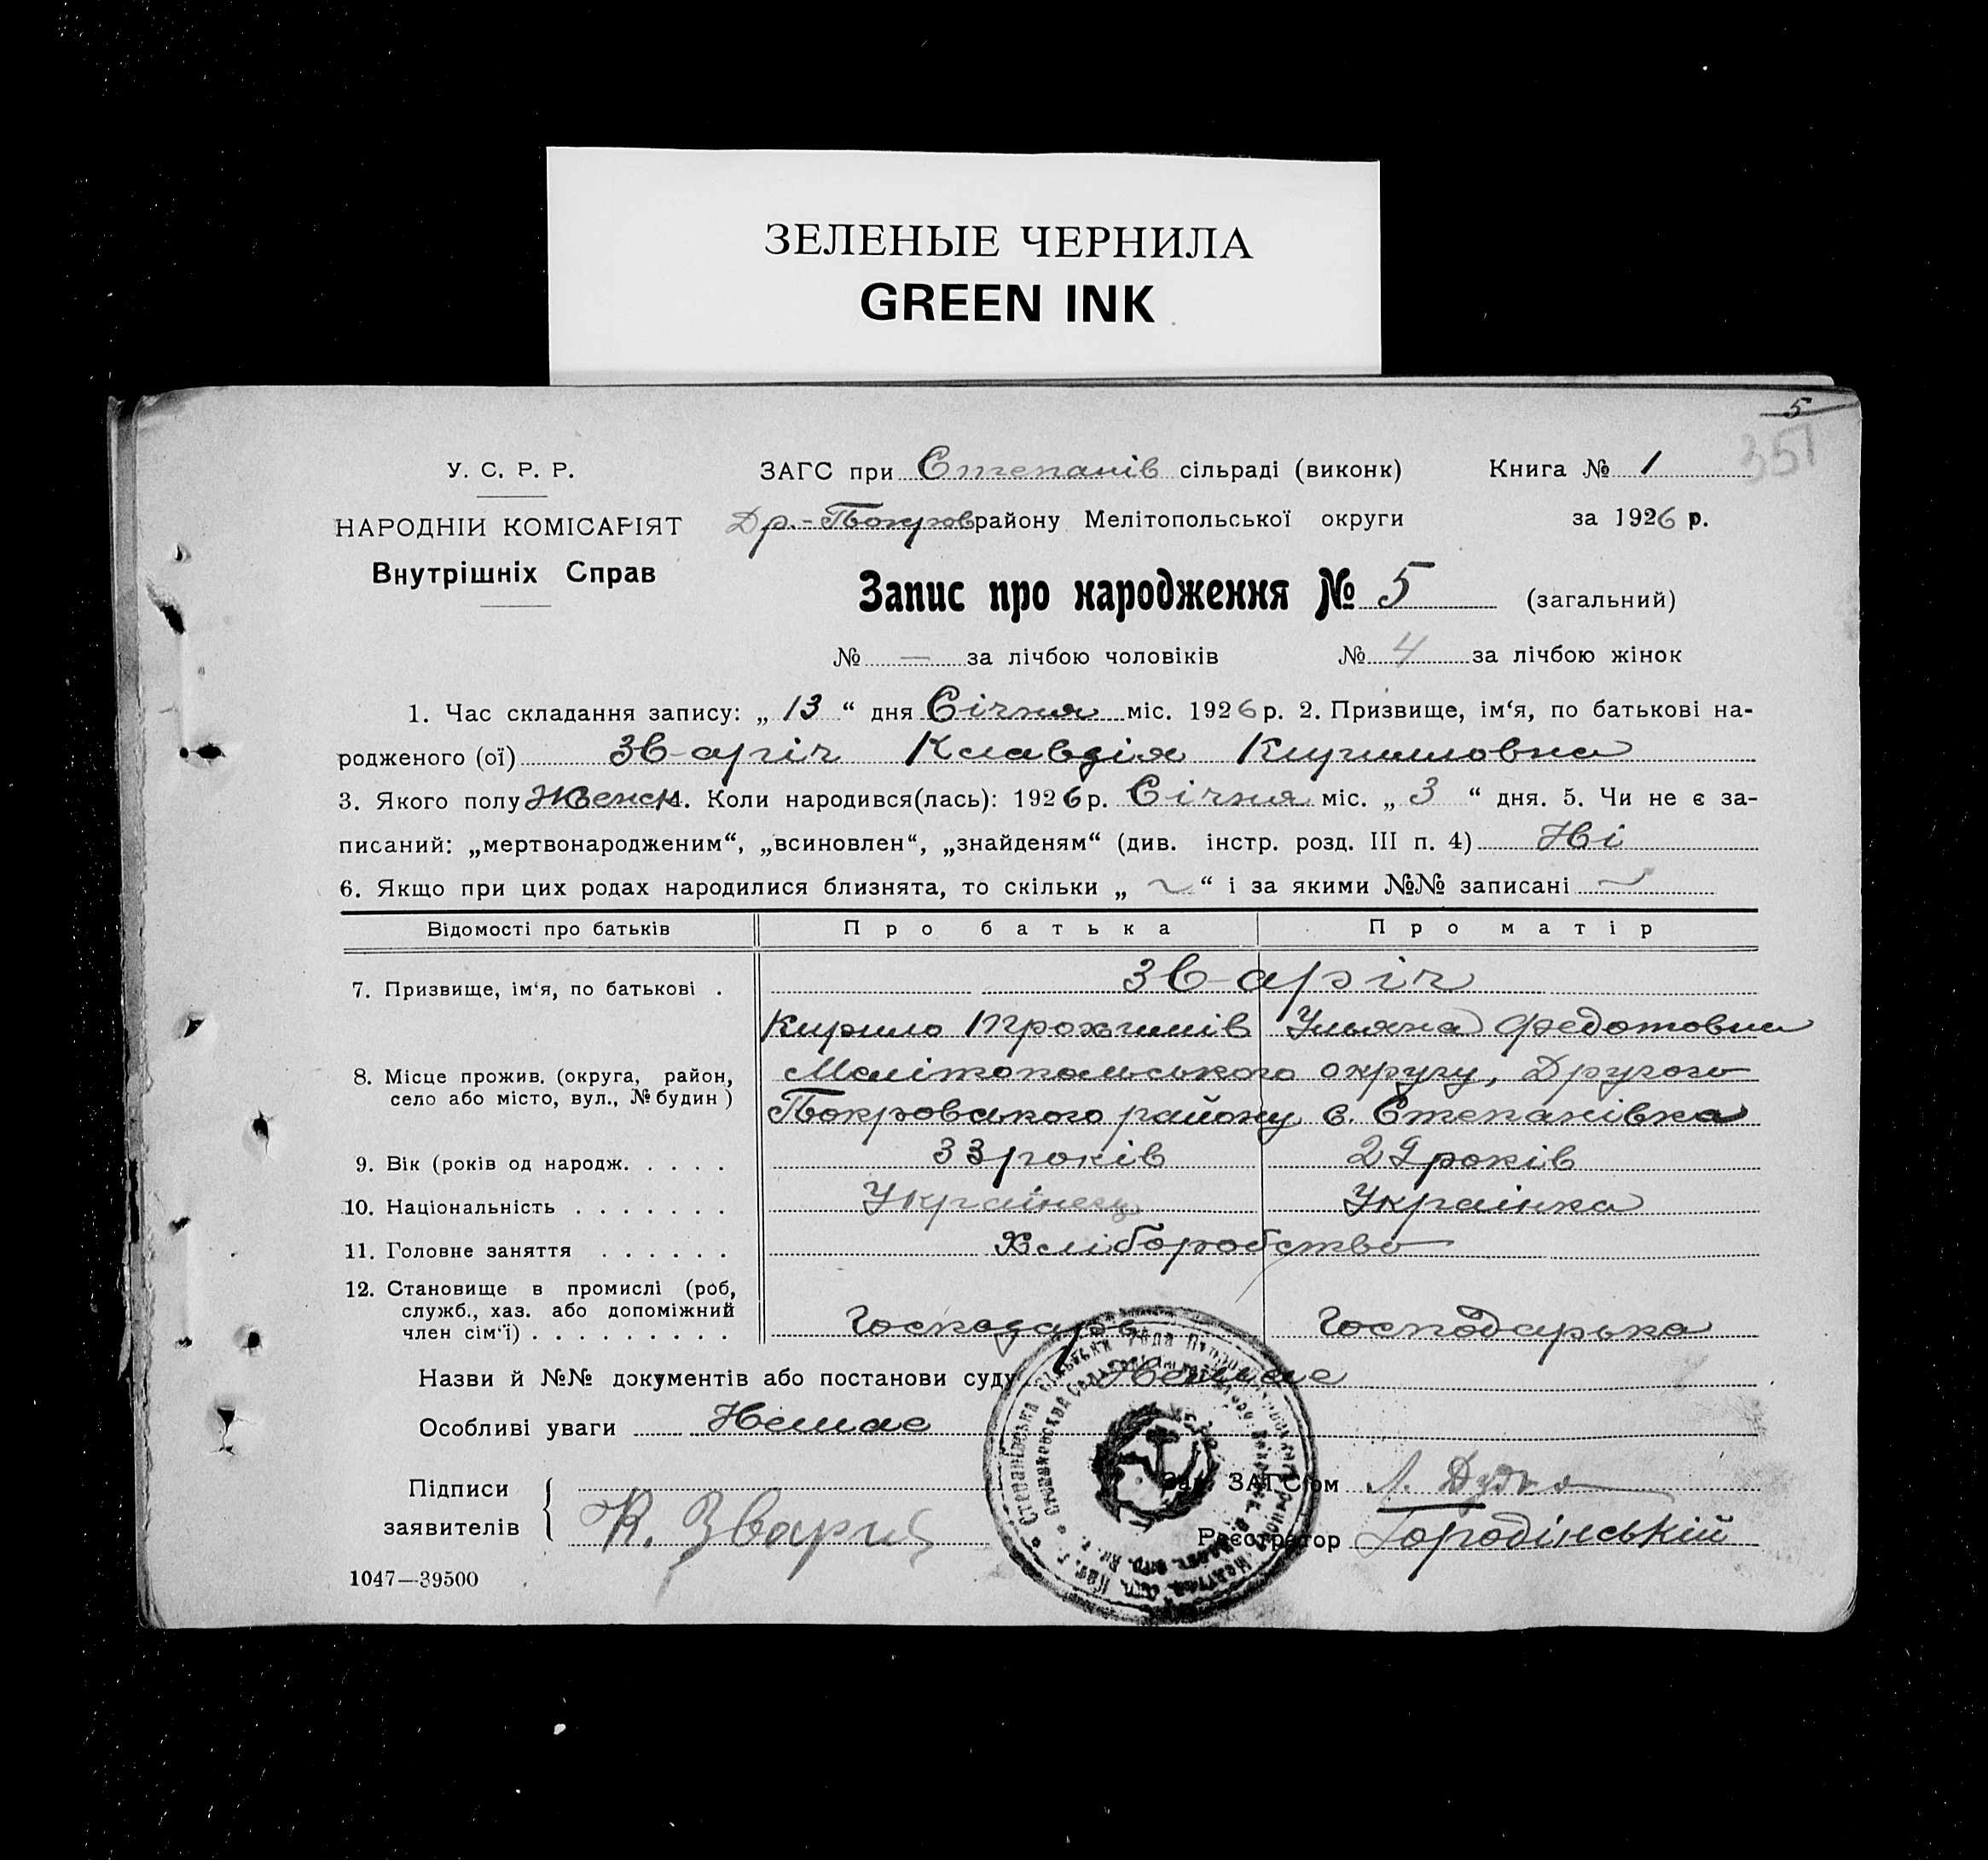 ЗЕЛЕНЫЕ ЧЕРНИЛА
GREEN INK
5
351
У. С. Р. Р.
ЗАГС при Степанів сільраді (виконк) Книга № 1
НАРОДНІИ КОМІСАРІЯТ
Др.-Покров району Мелітопольської округи за 1926 р.
Внутрішніх Справ
Запис про народження № 5 (загальний)
№ — за лічбою чоловіків № 4 за лічбою жінок
1. Час складання запису: „ 13 “ дня Січня міс. 1926 р. 2. Призвище, ім‘я, по батькові на-
родженого (ої) Зваріч Клавдія Кирилловна
3. Якого полу Женск. Коли народився(лась): 1926 р. Січня міс. „ 3 “ дня. 5. Чи не є за-
писаний: „мертвонародженим“, „всиновлен“, „знайденям“ (див. інстр. розд. III п. 4) Ні
6. Якщо при цих родах народилися близнята, то скільки „ ~ “ і за якими №№ записані ~
Відомості про батьків Про батька Про матір
7. Призвище, ім‘я, по батькові . Зваріч
Кирило Трохимів Ульяна Федотовна
8. Місце прожив. (округа, район, Мелітопольського округу, Другого
село або місто, вул., № будин) Покровського району с. Степанівка
9. Вік (років од народж. . . . . 33 років 29 років
10. Національність . . . . . . . Украінец Украінка
11. Головне заняття . . . . . . Хліборобство
12. Становище в промислі (роб,
служб., хаз. або допоміжний
член сім‘ї) . . . . . . . . . Господарь Господарька
Назви й №№ документів або постанови суду Немае
Особливі уваги Немае
Підписи
заявителів К. Зварич
Зав. ЗАГС‘ом Л. Дудка
Реєстратор Городінській
1047—39500